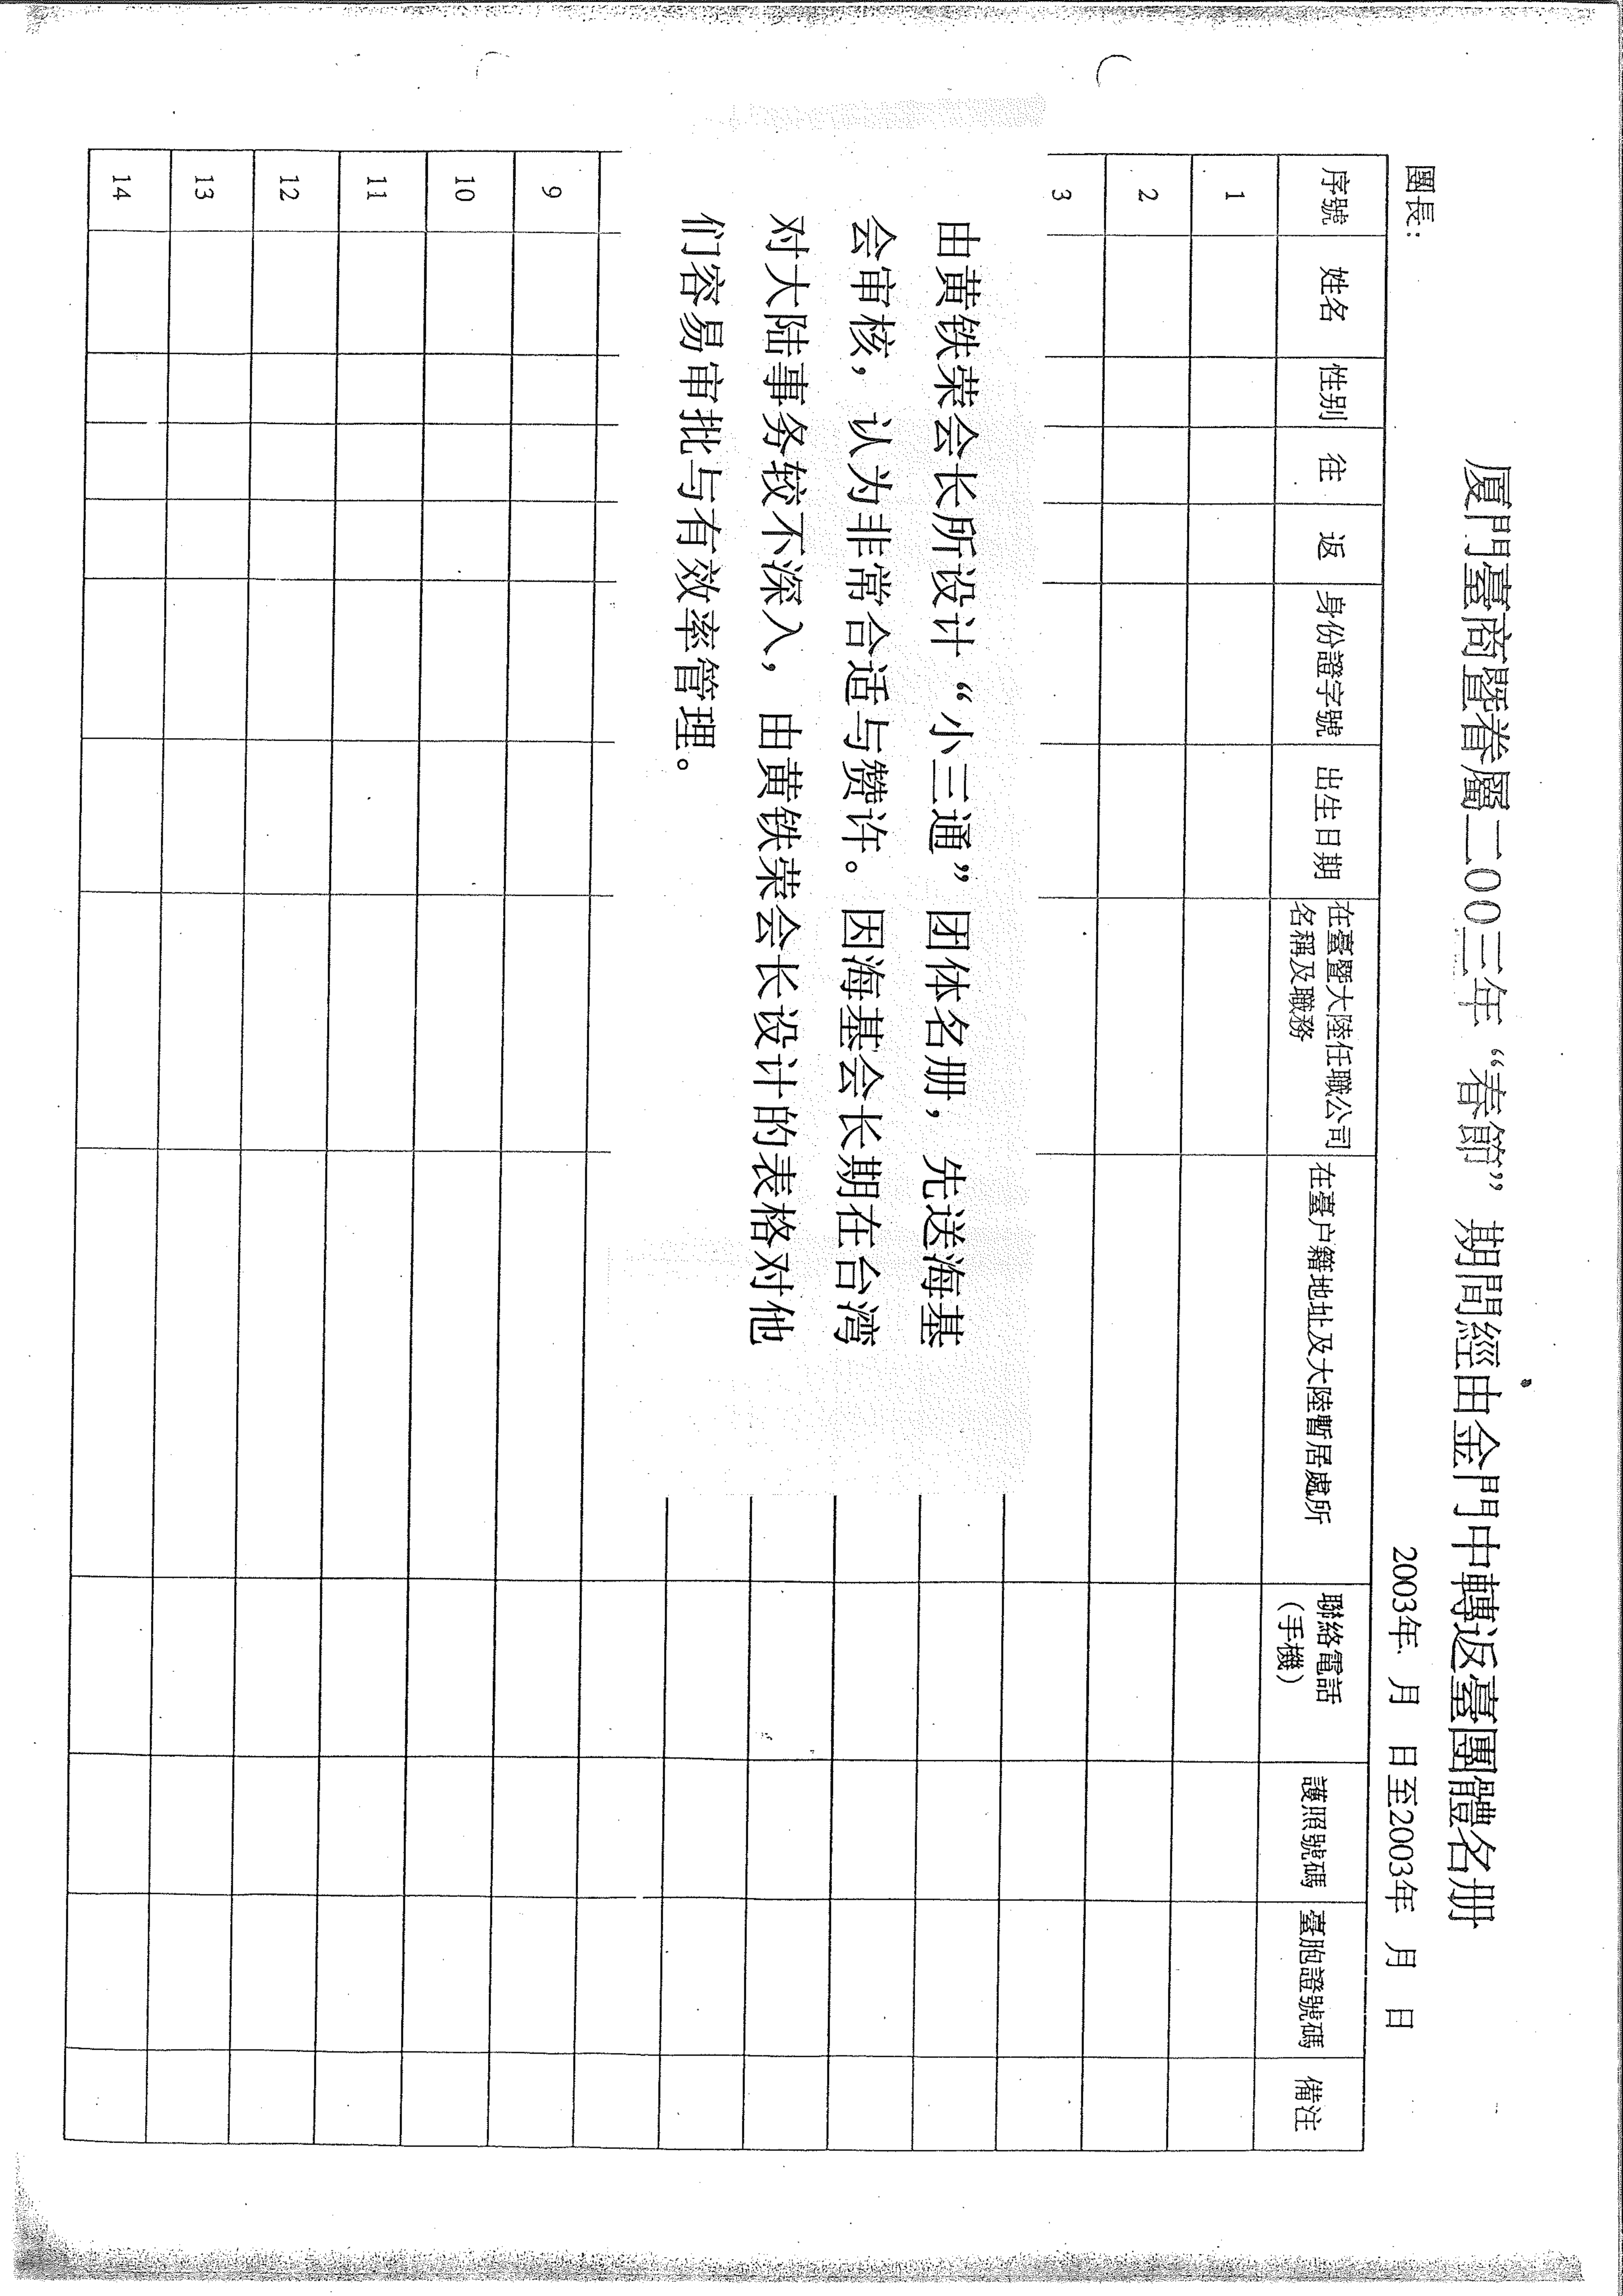 厦門臺商暨眷屬二00三年“春節”期間經由金門中轉返臺團體名册
2003年 月 日至2003年 月 日
團長:
序號 姓名 性别 往 返 身份證字號 出生日期 在臺暨大陸任職公司名稱及職務 在臺户籍地址及大陸暫居處所 聯絡電話(手機) 護照號碼 臺胞證號碼 備注
1
2
3
由黄铁荣会长所设计“小三通”团体名册，先送海基
会审核，认为非常合适与赞许。因海基会长期在台湾
对大陆事务较不深入，由黄铁荣会长设计的表格对他
们容易审批与有效率管理。
9
10
11
12
13
14